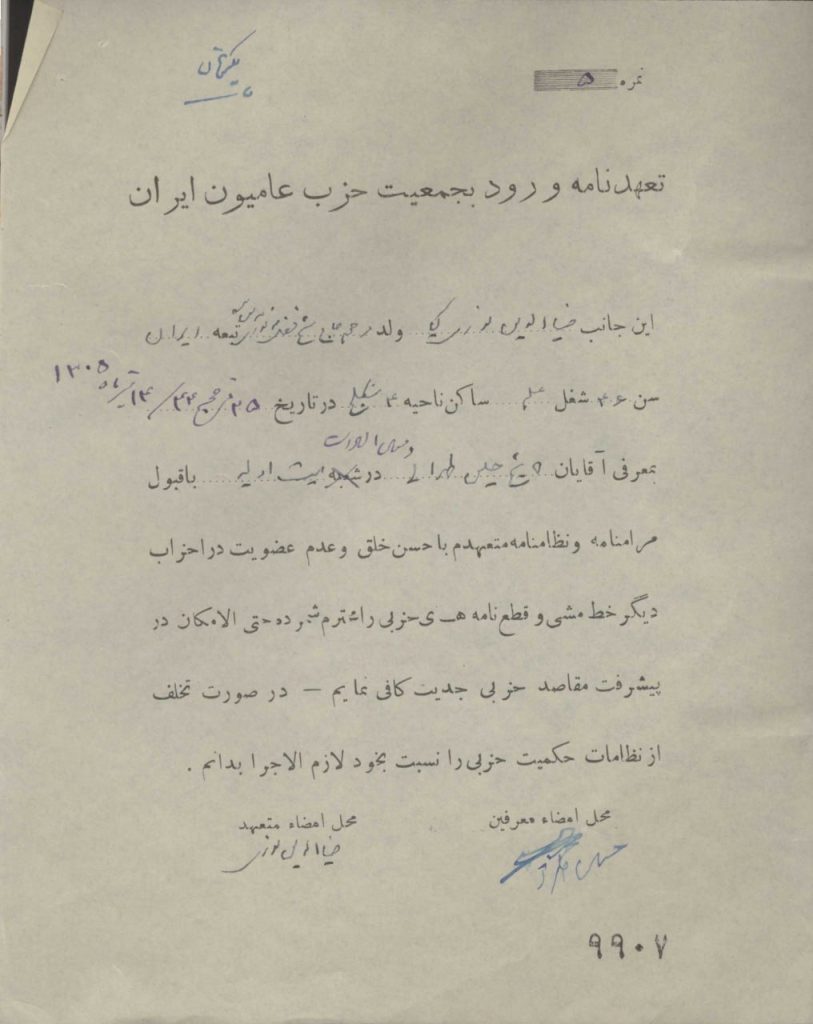 نمره ۵
تعهدنامه ورود بجمعیت حزب عامیون ایران
این جانب ضیاءالدین نوری کیا ولد مرحوم حاج شیخ فضل الله نوری تبعه ایران
سن ۴۶ شغل معلم ساکن ناحیه ۴ سنگلج در تاریخ ۲۵
۱۳۰۵
بمعرفی آقایان شیخ طهرانی در شعبه باقبول
مرامنامه و نظامنامه متعهدم با حسن خلق و عدم عضویت در احزاب
دیگر خط مشی و قطع نامه های حزبی را محترم شمرده حتی الامکان در
پیشرفت مقاصد حزبی جدیت کافی نمایم — در صورت تخلف
از نظامات حکمیت حزبی را نسبت بخود لازم الاجرا بدانم .
محل امضاء معرفین
محل امضاء متعهد
ضیاءالدین نوری
۹۹۰۷